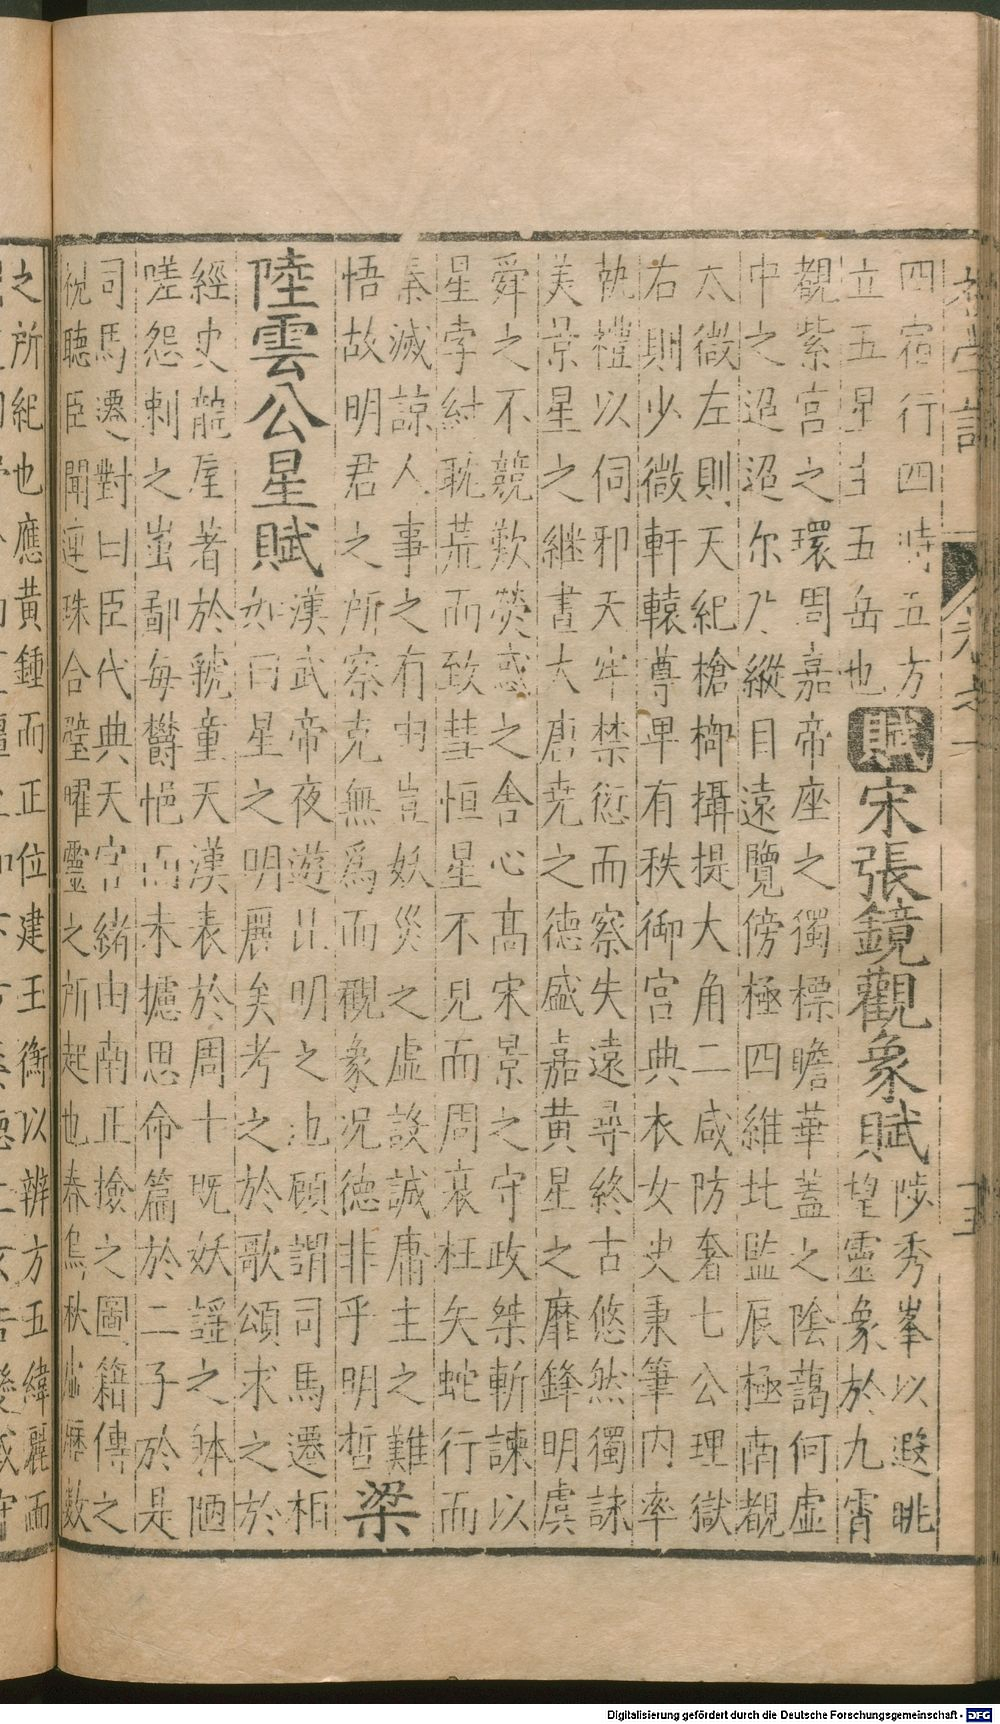 初學記
卷之一
十五
四宿行四時五方
立五星主五岳也
賦
宋張鏡觀象賦
陟秀峯以遐眺
望靈象於九霄
覩紫宮之環周嘉帝座之獨標瞻華蓋之陰藹何虛
中之迢迢尔乃縱目遠覽傍極四維北監辰極南覩
太微左則天紀槍棓攝提大角二咸防奢七公理獄
右則少微軒轅尊卑有秩御宮典衣女史秉筆內率
執禮以伺邪天牢禁愆而察失遠尋終古悠然獨詠
美景星之継晝大唐堯之德盛嘉黃星之靡鋒明虞
舜之不競歎熒惑之舍心高宋景之守政桀斬諫以
星孛紂耽荒而致彗恒星不見而周衰枉矢蛇行而
秦滅諒人事之有由豈妖災之虛設誠庸主之難
悟故明君之所察克無為而觀象況德非乎明哲
梁
陸雲公星賦
漢武帝夜遊昆明之池顧謂司馬遷相
如曰星之明麗矣考之於歌頌求之於
經史龍尾著於虢童天漢表於周十既妖謡之躰陋
嗟怨刺之蚩鄙每欝悒而未攄思命篇於二子於是
司馬遷對曰臣代典天官緒由南正撿之圖籍傳之
祝聽臣聞連珠合璧曜靈之所起也春鳥秋虛曆數
之所紀也應黃鍾而正位建王衡以辨方五緯麗而
Digitalisierung gefördert durch die Deutsche Forschungsgemeinschaft - DFG